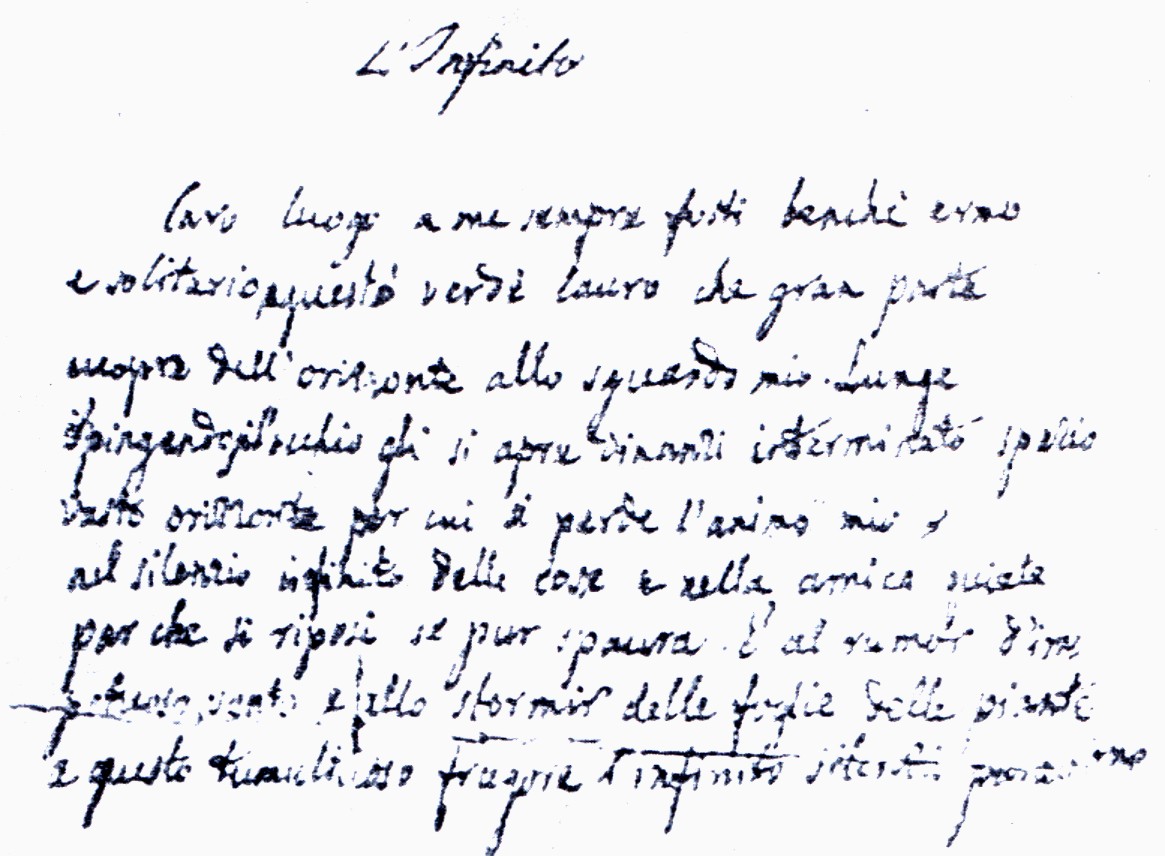 L'Infinito
Caro luogo a me sempre fosti benché ermo
e solitario, e questo verde lauro che gran parte
cuopre dell'orizzonte allo sguardo mio. Lunge
spingendosi l'occhio gli si apre dinanzi interminato spazio
vasto orizzonte per cui si perde l'animo mio
nel silenzio infinito delle cose e nella amica quiete
par che si riposi se pur spaura. E al rumor d'im
petuoso vento e allo stormir delle foglie delle piante
a questo tumultuoso fragore l'infinito silenzio